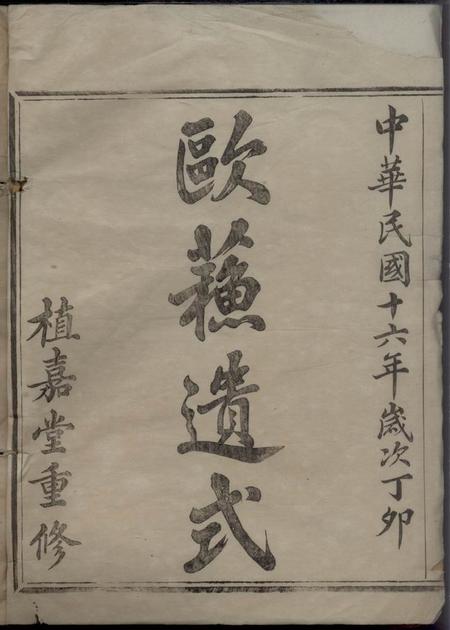 中華民國十六年歲次丁卯
歐蘓遺式
植嘉堂重修